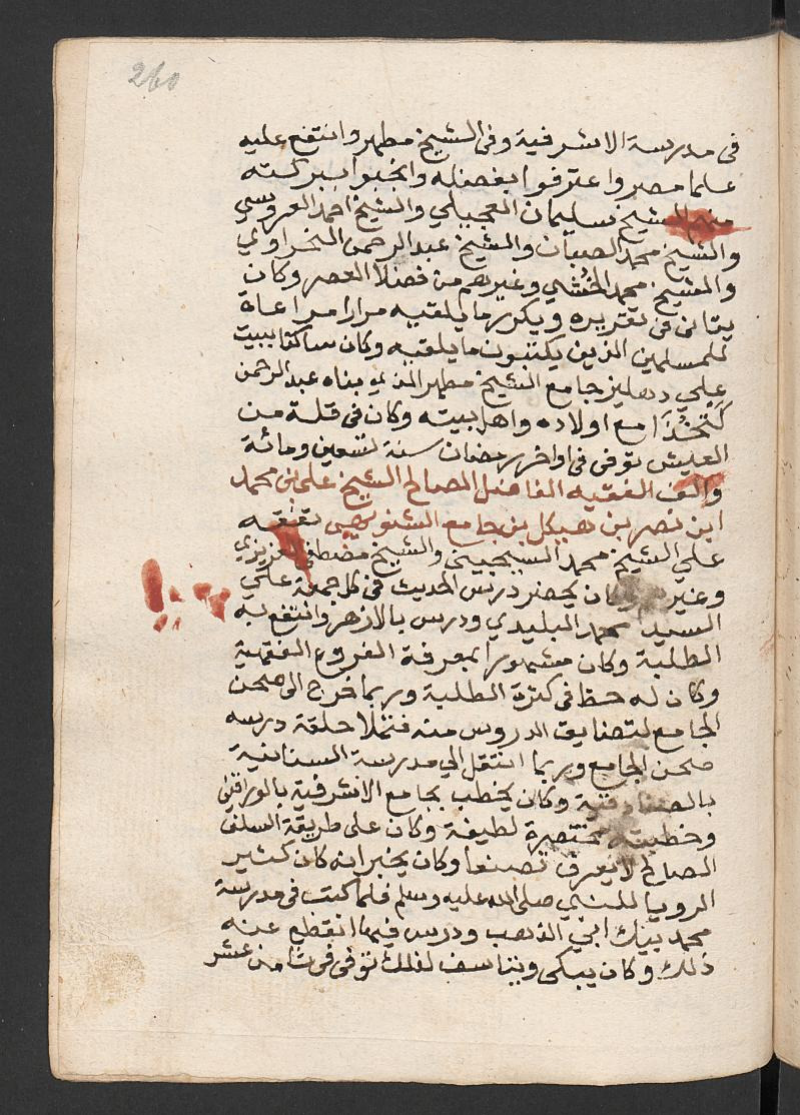 260
في مدرسة الاشرفية وفي الشيخ مطهر وانتفع عليه
علما مصر واعترفوا بفضله وانجبوا ببركته
منهم الشيخ سليمان العجيلي والشيخ احمد العروسي
والشيخ محمد الصبان والشيخ عبد الرحمن النخراوي
والشيخ محمد الخشي وغيرهم من فضلا العصر وكان
يتانى في تقريره ويكرر ما يلقيه مرارا مراعاة
للمسلمين الذين يكتبون ما يلقيه وكان ساكنا ببيت
علي دهليز جامع الشيخ مطهر الذي بناه عبد الرحمن
كَتْخُدَا مع اولاده واهل بيته وكان في قلة من
العيش توفى في اواخر رمضان سنة تسعين ومائة
والف الفقيه الفاضل الصالح الشيخ علي بن محمد
ابن نصر بن هيكل بن جامع الشنويهي تفقه
علي الشيخ محمد السجيني والشيخ مصطفى العزيزي
وغيرهم وكان يحضر درس الحديث في كل جمعة علي
السيد محمد البليدي ودرس بالازهر وانتفع به
الطلبة وكان مشهورا بمعرفة الفروع الفقهية
وكان له حظ في كثرة الطلبة وربما خرج الى صحن
الجامع لتضايق الدروس منه فتملا حلقة درسه
صحن الجامع وربما انتقل الي مدرسة السنانية
بالصنادقية وكان يخطب بجامع الاشرفية بالوراقين
وخطبته مختصرة لطيفة وكان على طريقة السلف
الصالح لا يعرف تصنعا وكان يخبر انه كان كثير
الرويا للنبي صلى الله عليه وسلم فلما كنت في مدرسة
محمد بيك ابي الذهب ودرس فيها انقطع عنه
ذلك وكان يبكي ويتاسف لذلك توفى في ثامن عشر